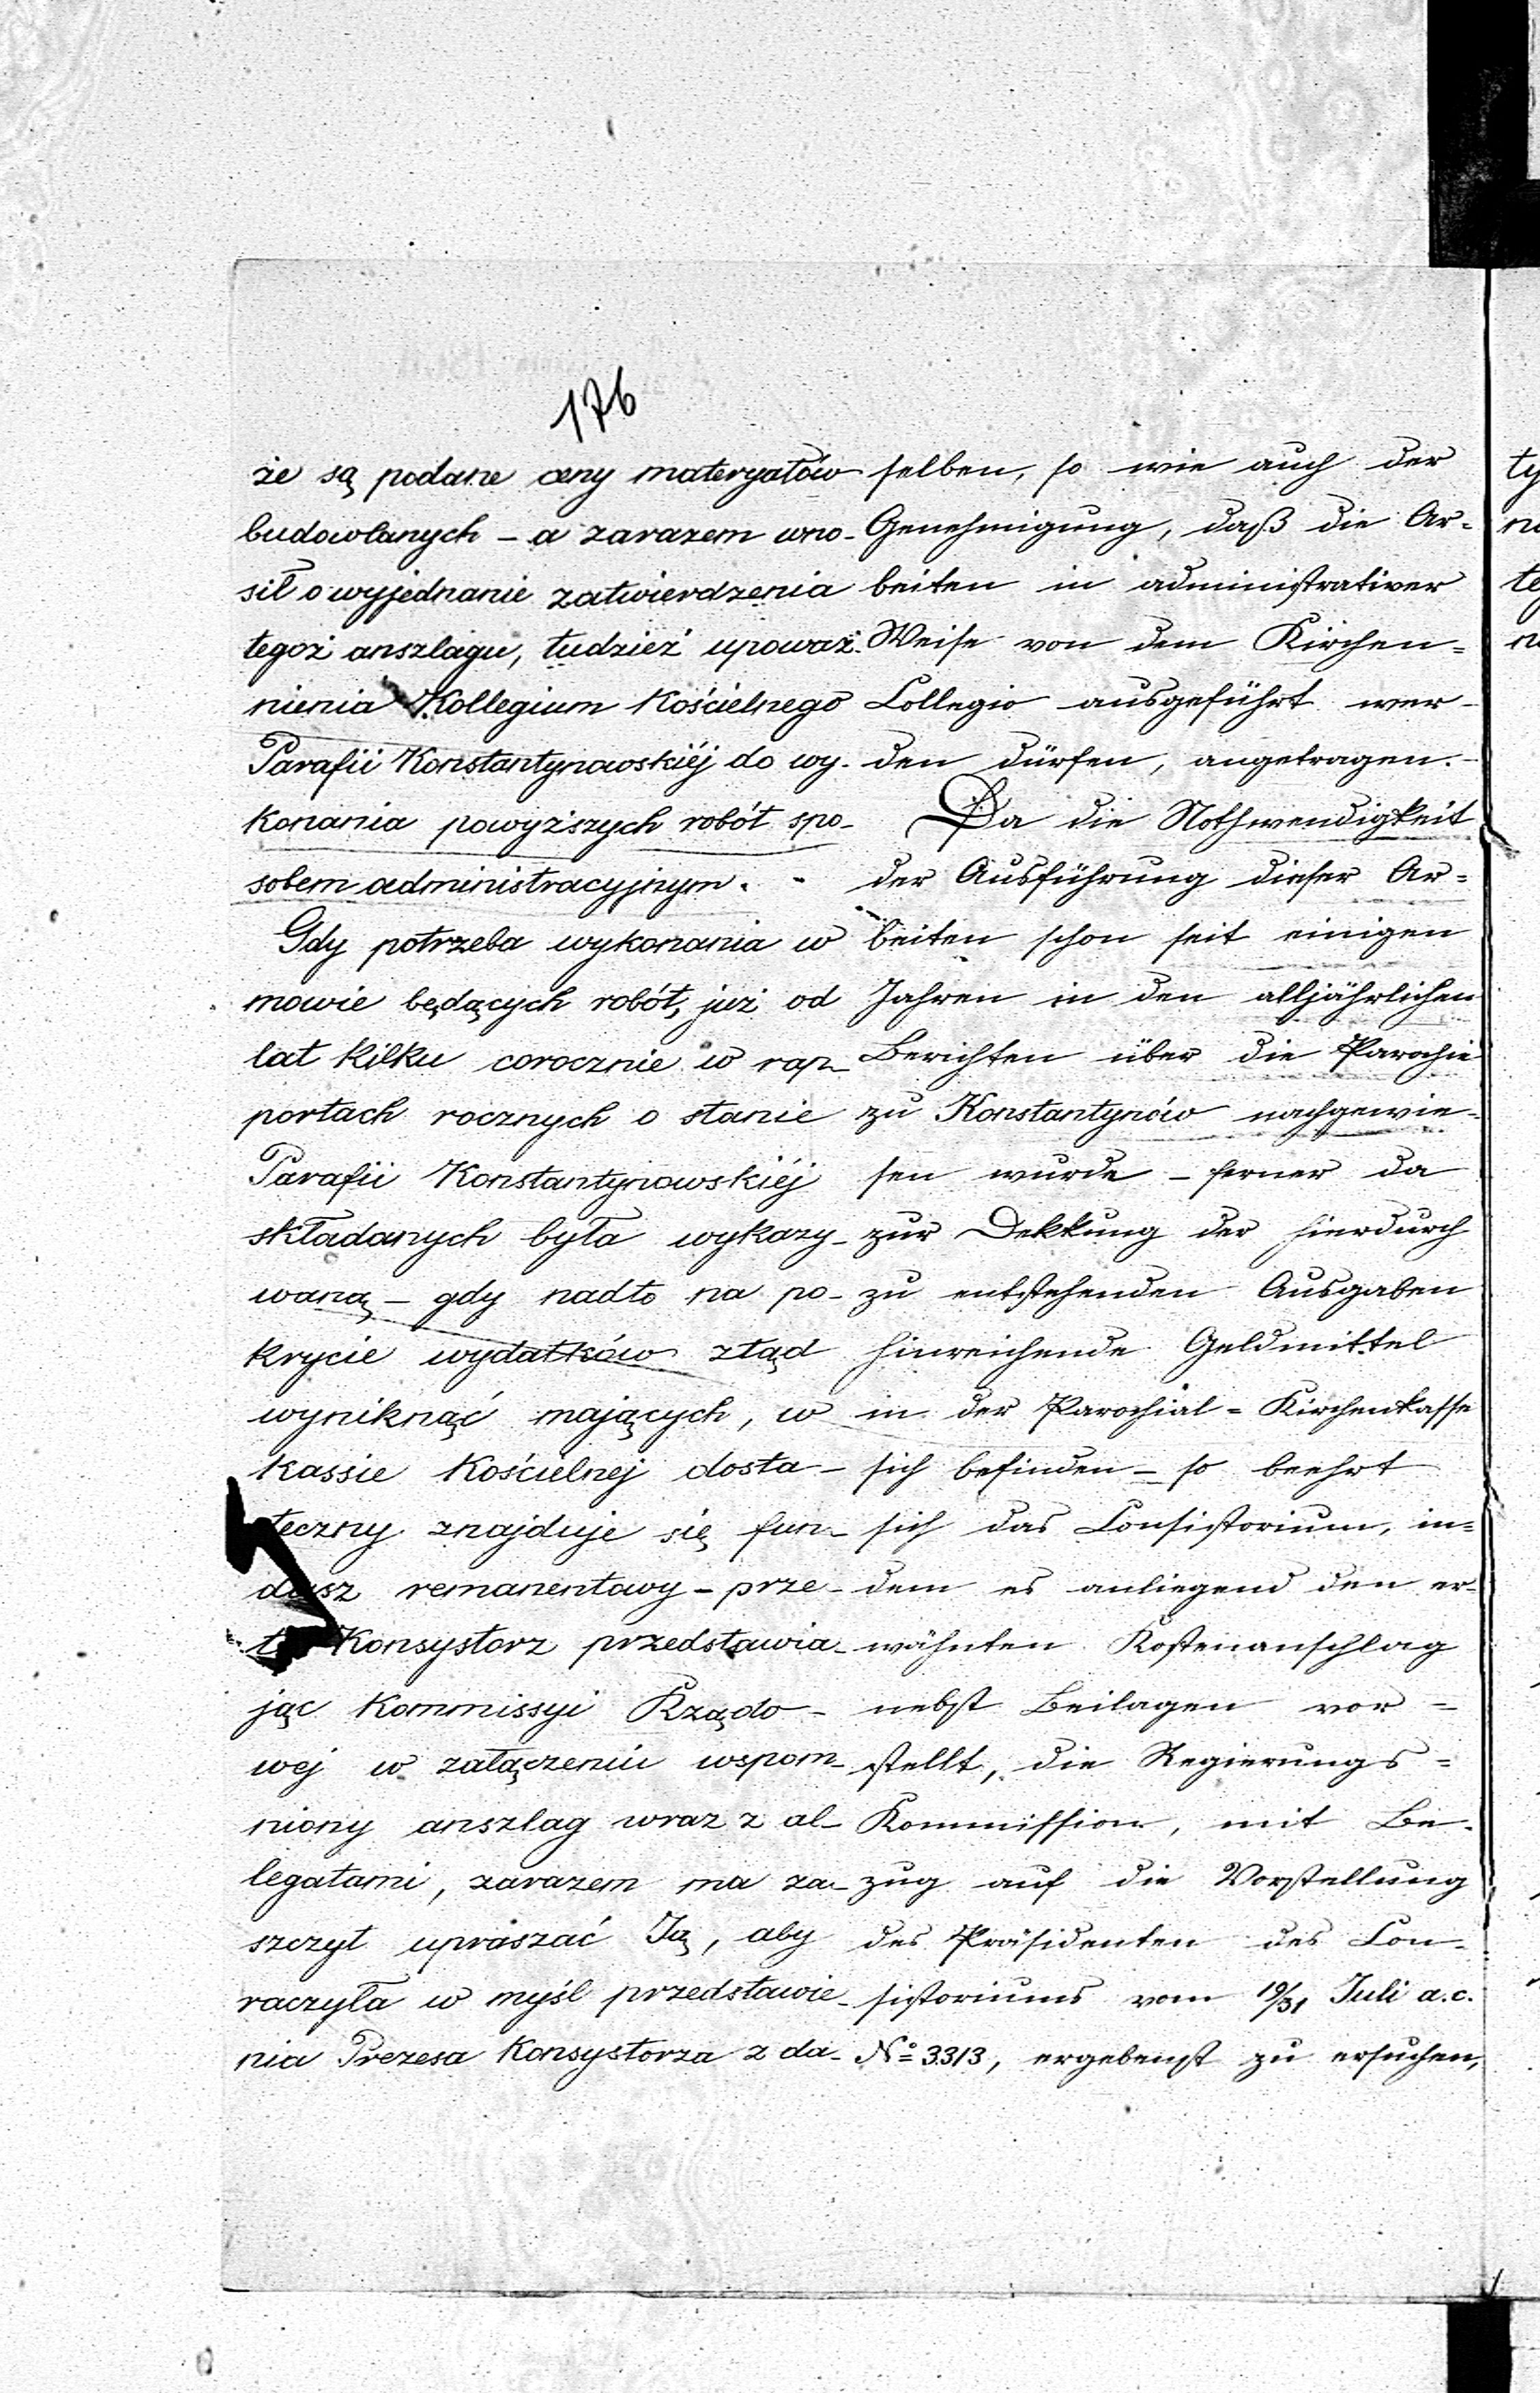 176
że są podane ceny materyałów
budowlanych – a zarazem wno-
sił o wyjednanie zatwierdzenia
tegoż anszlagu, tudzież upoważ-
nienia Kollegium Kościelnego
Parafii Konstantynowskiéj do wy-
konania powyższych robót spo-
sobem administracyjnym.
Gdy potrzeba wykonania w
mowie będących robót, już od
lat kilku corocznie w rap-
portach rocznych o stanie
Parafii Konstantynowskiéj
składanych była wykazy-
waną – gdy nadto na po-
krycie wydatków ztąd
wyniknąć mających, w
kassie Kościelnej dosta-
teczny znajduje się fun-
dusz remanentowy – prze-
to Konsystorz przedstawia-
jąc Kommissyi Rządo-
wej w załączeniu wspom-
niony anszlag wraz z al-
legatami, zarazem ma za-
szczyt upraszać Ją, aby
raczyła w myśl przedstawie-
nia Prezesa Konsystorza z da-
selben, so wie auch der
Genehmigung, daß die Ar=
beiten in administrativer
Weise von dem Kirchen=
Collegio ausgeführt wer-
den dürfen, angetragen.
Da die Nothwendigkeit
der Ausführung dieser Ar=
beiten schon seit einigen
Jahren in den alljährlichen
Berichten über die Parochie
zu Konstantynów nachgewie-
sen wurde – ferner da
zur Dekkung der hierdurch
zu entstehenden Ausgaben
hinreichende Geldmittel
in der Parochial=Kirchenkasse
sich befinden – so beehrt
sich das Consistorium, in=
dem es anliegend den er-
wähnten Kostenanschlag
nebst Beilagen vor=
stellt, die Regierungs=
Kommission, mit Be-
zug auf die Vorstellung
des Präsidenten des Con-
sistoriums vom 19/31 Juli a.c.
No 3313, ergebenst zu ersuchen,
ty
te